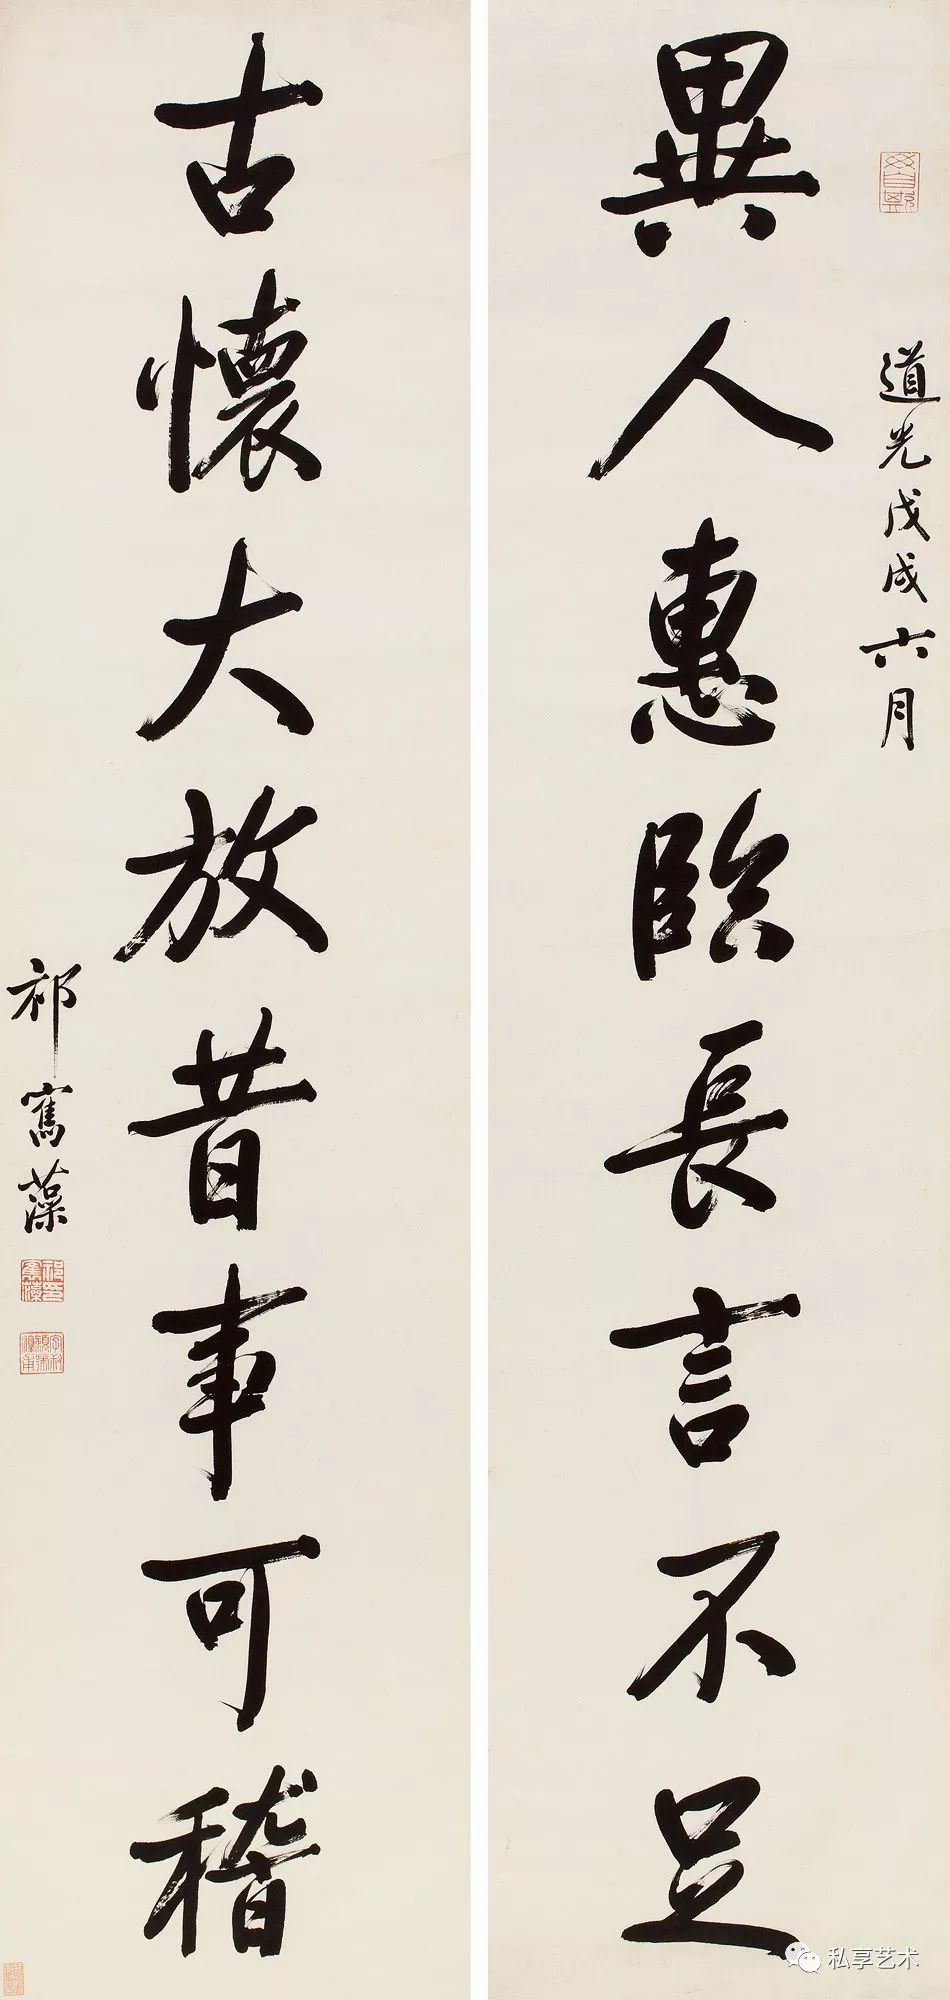 道光戊戌六月
異人惠臨長言不足
古懷大放昔事可稽
祁寯藻
私享艺术